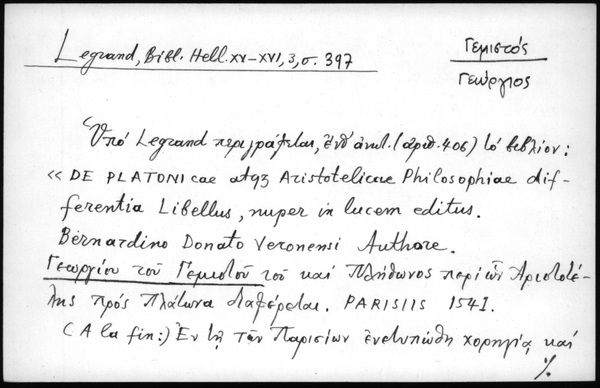 Legrand, Bibl. Hell. XV-XVI, 3, σ. 397
Γεμιστός
Γεώργιος
Ὑπό Legrand περιγράφεται, ἐνθ' ἀνωτ. (ἀριθ. 406) τό βιβλίον:
« DE PLATONicae atq3 Aristotelicae Philosophiae dif-
ferentia Libellus, nuper in lucem editus.
Bernardino Donato Veronensi Authore.
Γεωργίου τοῦ Γεμιστοῦ τοῦ καί Πλήθωνος περί ὧν Ἀριστοτέ-
λης πρός Πλάτωνα διαφέρεται. PARISIIS 1541.
(A la fin:) Ἐν τῇ τῶν Παρισίων ἐνετυπώθη χορηγίᾳ καί
%